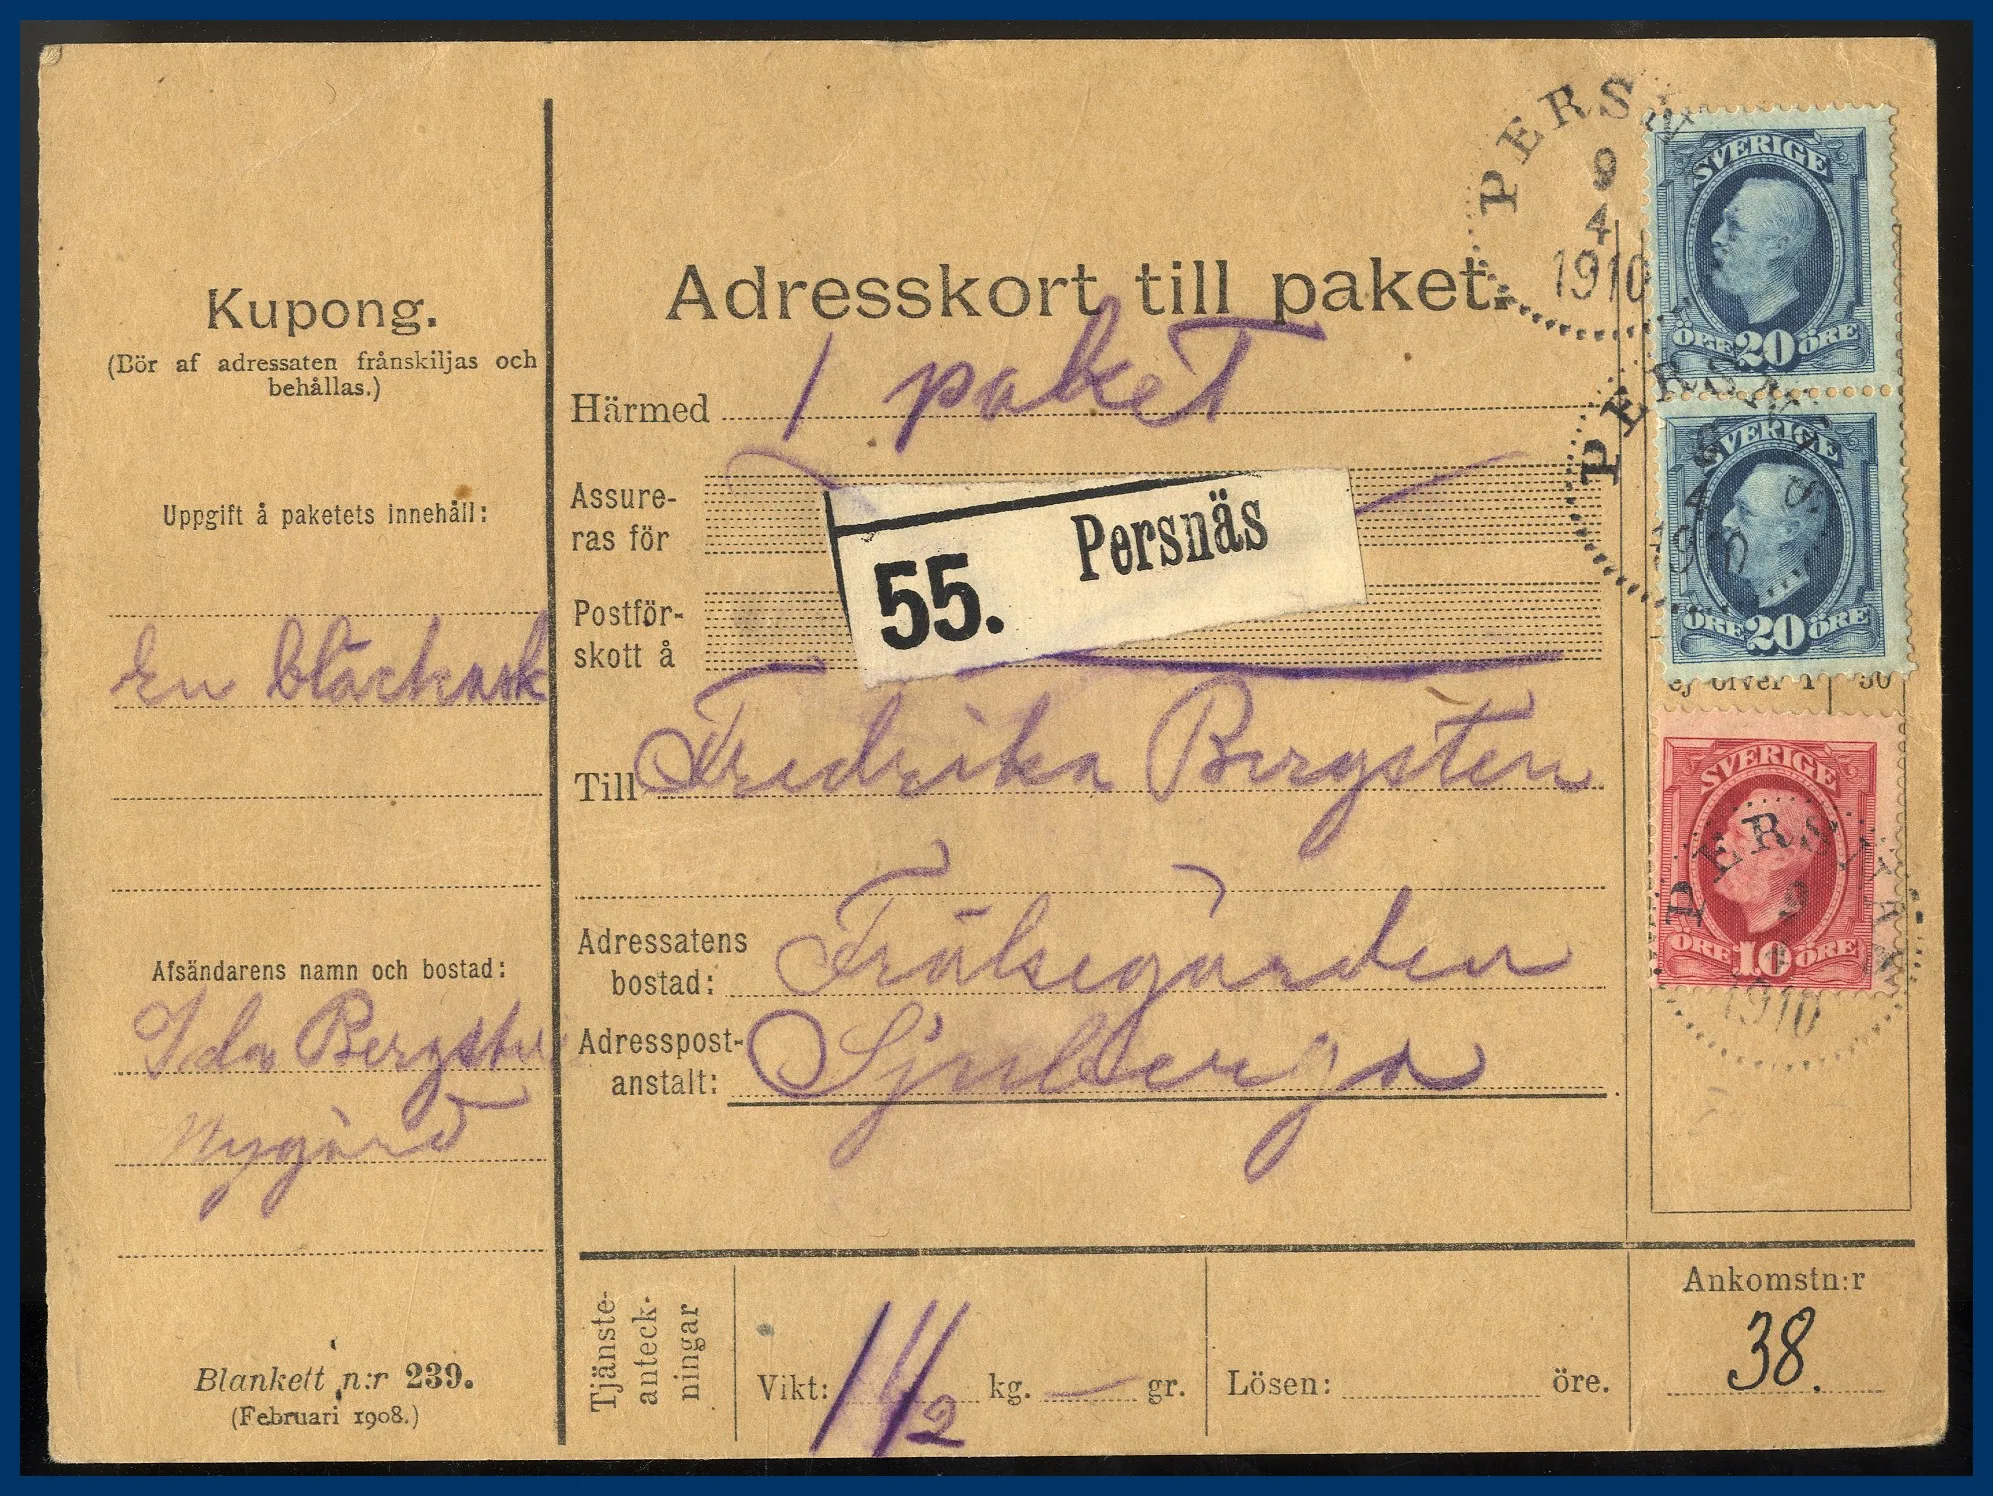 Kupong.
(Bör af adressaten frånskiljas och
behållas.)
Uppgift å paketets innehåll:
En bläckask
Afsändarens namn och bostad:
Ida Bergsten
Nygård
Blankett n:r 239.
(Februari 1908.)
Adresskort till paket.
Härmed 1 paket
Assure-
ras för
55. Persnäs
Postför-
skott å
Till Fredrika Bergsten
Adressatens
bostad: Frälsegården
Adresspost-
anstalt: Sjuberga
Tjänste-
anteck-
ningar
Vikt: 1 1/2 kg. — gr.
Lösen: öre.
Ankomstn:r
38.
PERSN
9
4
1910
SVERIGE
ÖRE 20 ÖRE
PERSNÄS
1910
SVERIGE
ÖRE 20 ÖRE
ej öfver 1 30
SVERIGE
PERSNÄS
9
ÖRE 10 ÖRE
1910